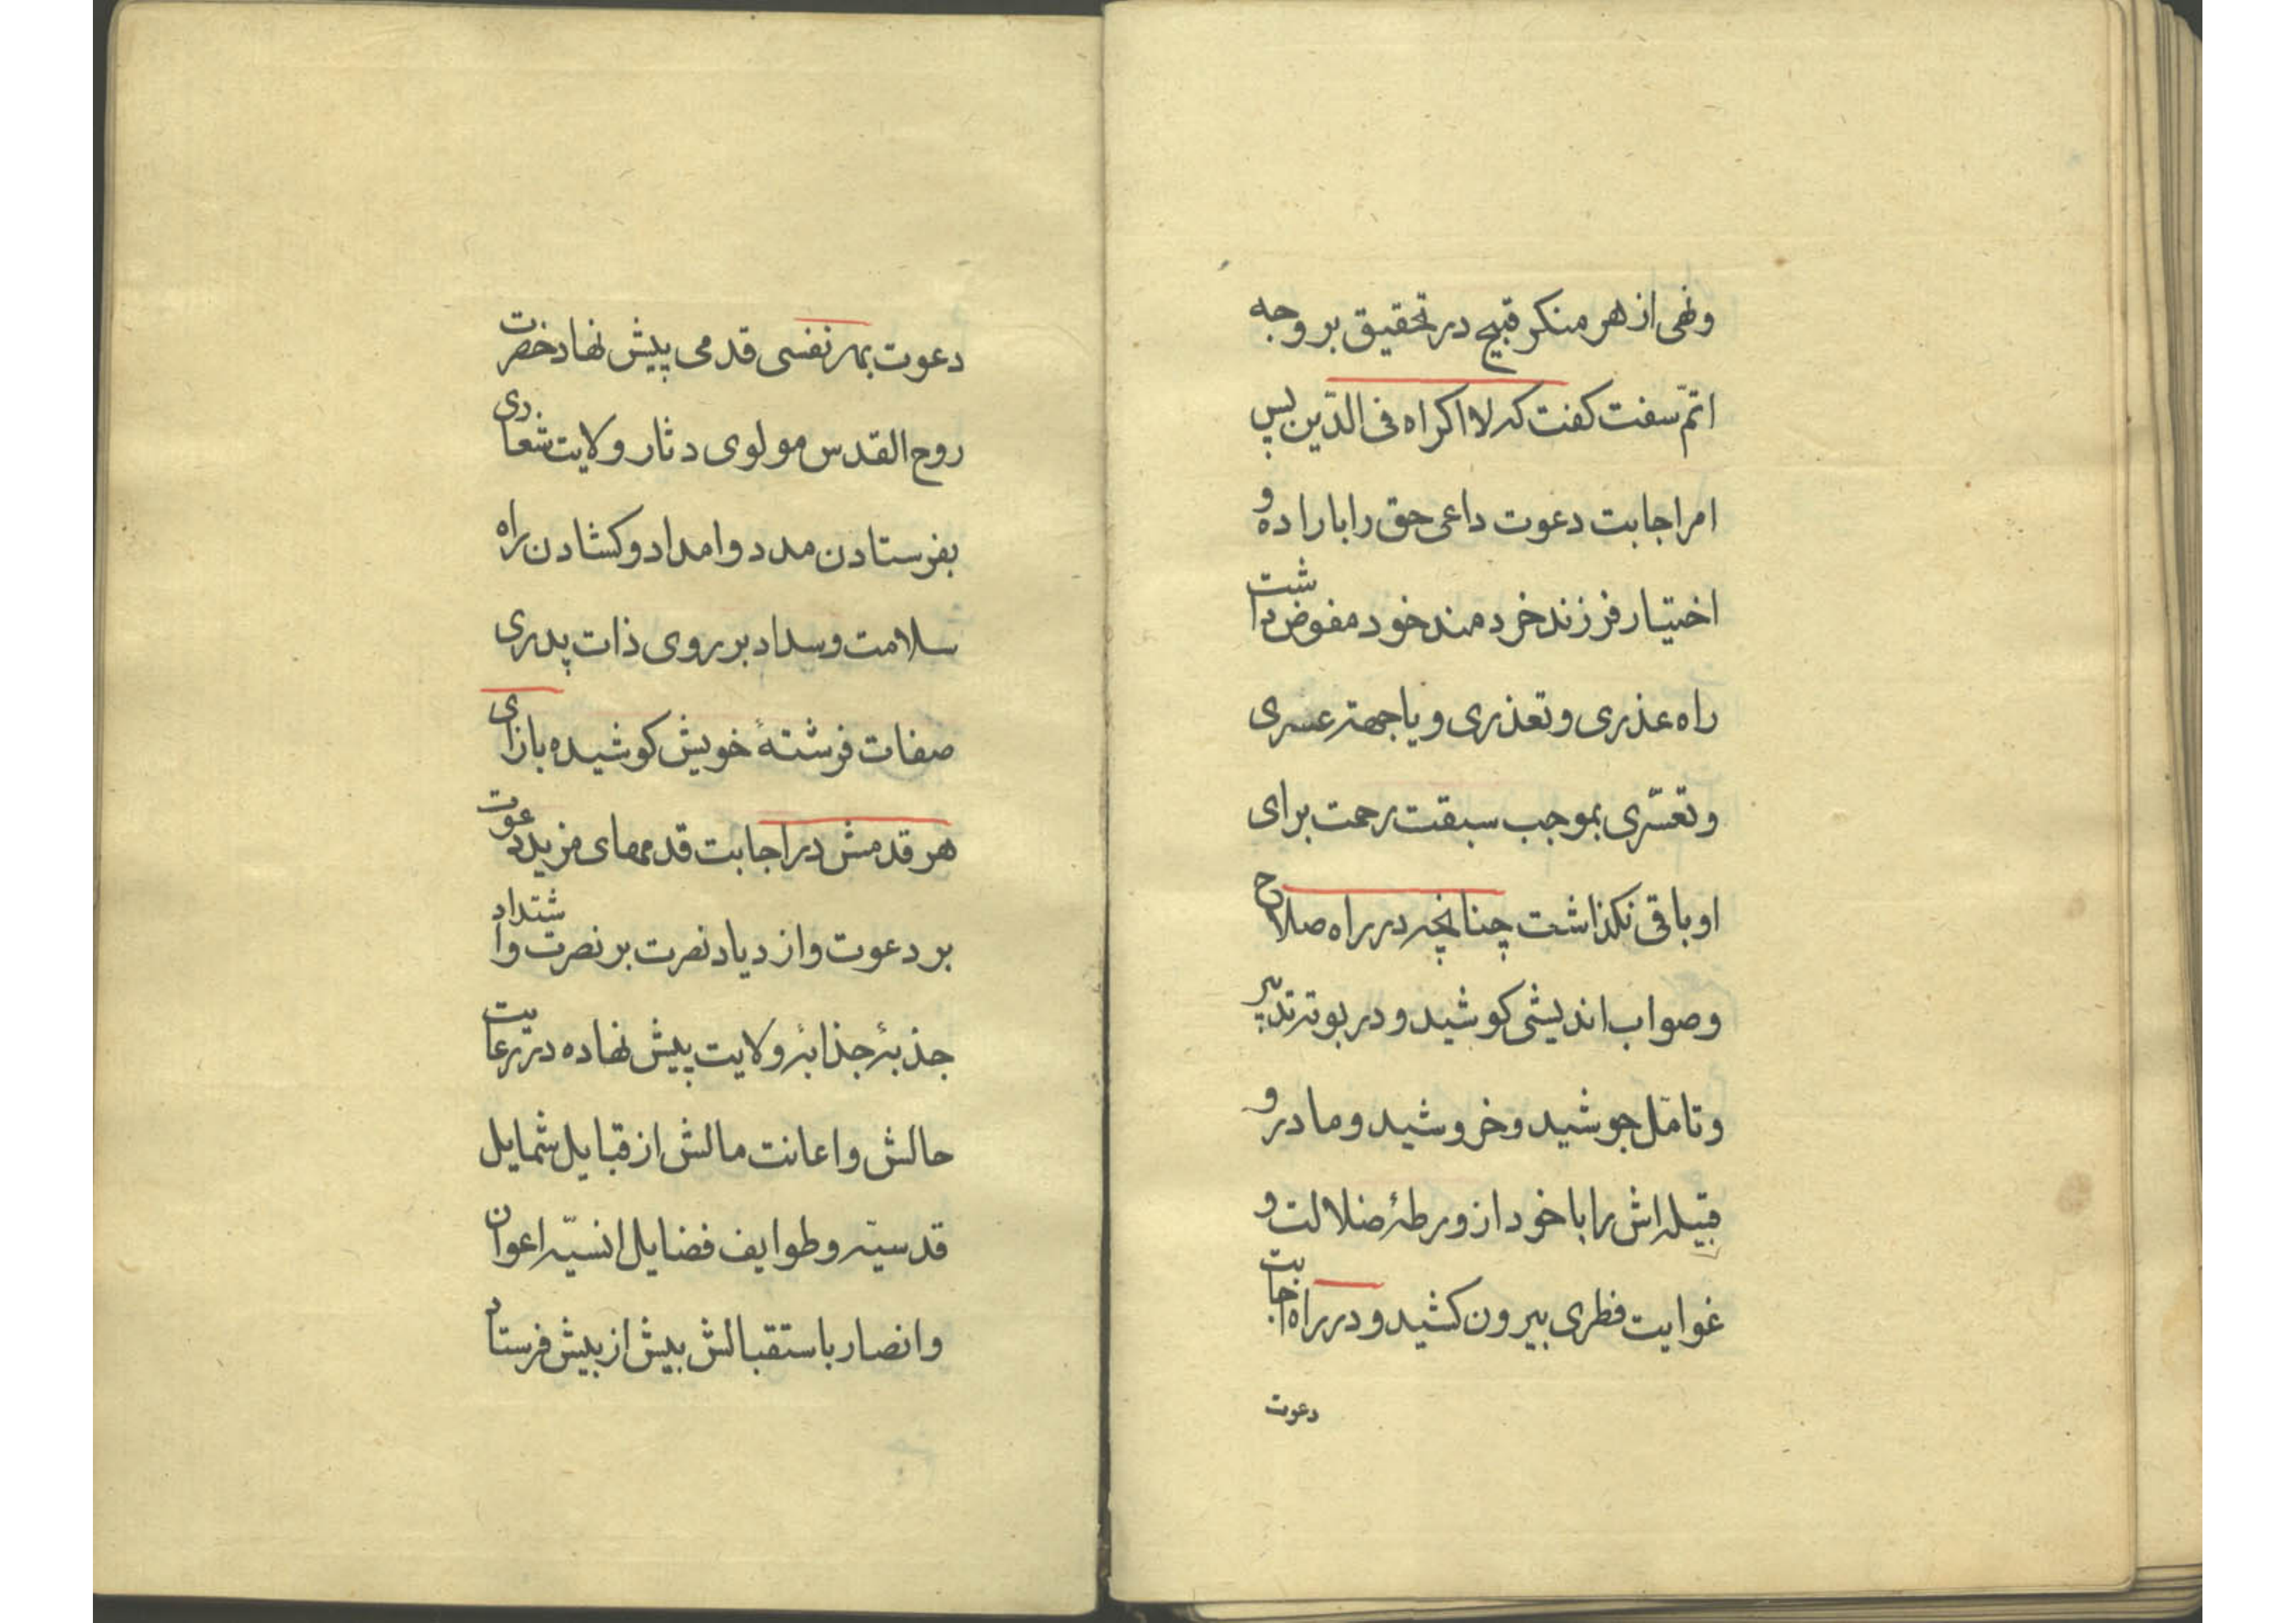 ونهی از هر منکر قبیح در تحقیق بر وجه
اتمّ سفت کفت که لا اکراه فی الدّین پس
امر اجابت دعوت داعی حق را باراده و
اختیار فرزند خردمند خود مفوض داشت
راه عذری و تعذری و یا جهتر عسری
و تعسّری بموجب سبقت رحمت برای
او باقی نکذاشت چنانچه در راه صلاح
و صواب اندیشی کوشید و در بوته تدبیر
و تامّل جوشید و خروشید و مادر و
قبیله اش را با خود از ورطهٔ ضلالت و
غوایت فطری بیرون کشید و در راه اجابت
دعوت
دعوت بهر نفسی قدمی پیش نهاد حضرت
روح القدس مولوی دثار ولایت شعاردی
بفرستادن مدد و امداد و کشادن راه
سلامت و سداد بر روی ذات پدری
صفات فرشتهٔ خویش کوشیده بازای
هر قدمش در اجابت قدمهای مزید دعوت
بر دعوت و ازدیاد نصرت بر نصرت و اشتداد
جذبهٔ جذابهٔ ولایت پیش نهاده در رعایت
حالش و اعانت مالش از قبایل شمایل
قدسیّه و طوایف فضایل انسیّه اعوان
و انصار باستقبالش بیش از بیش فرستاد